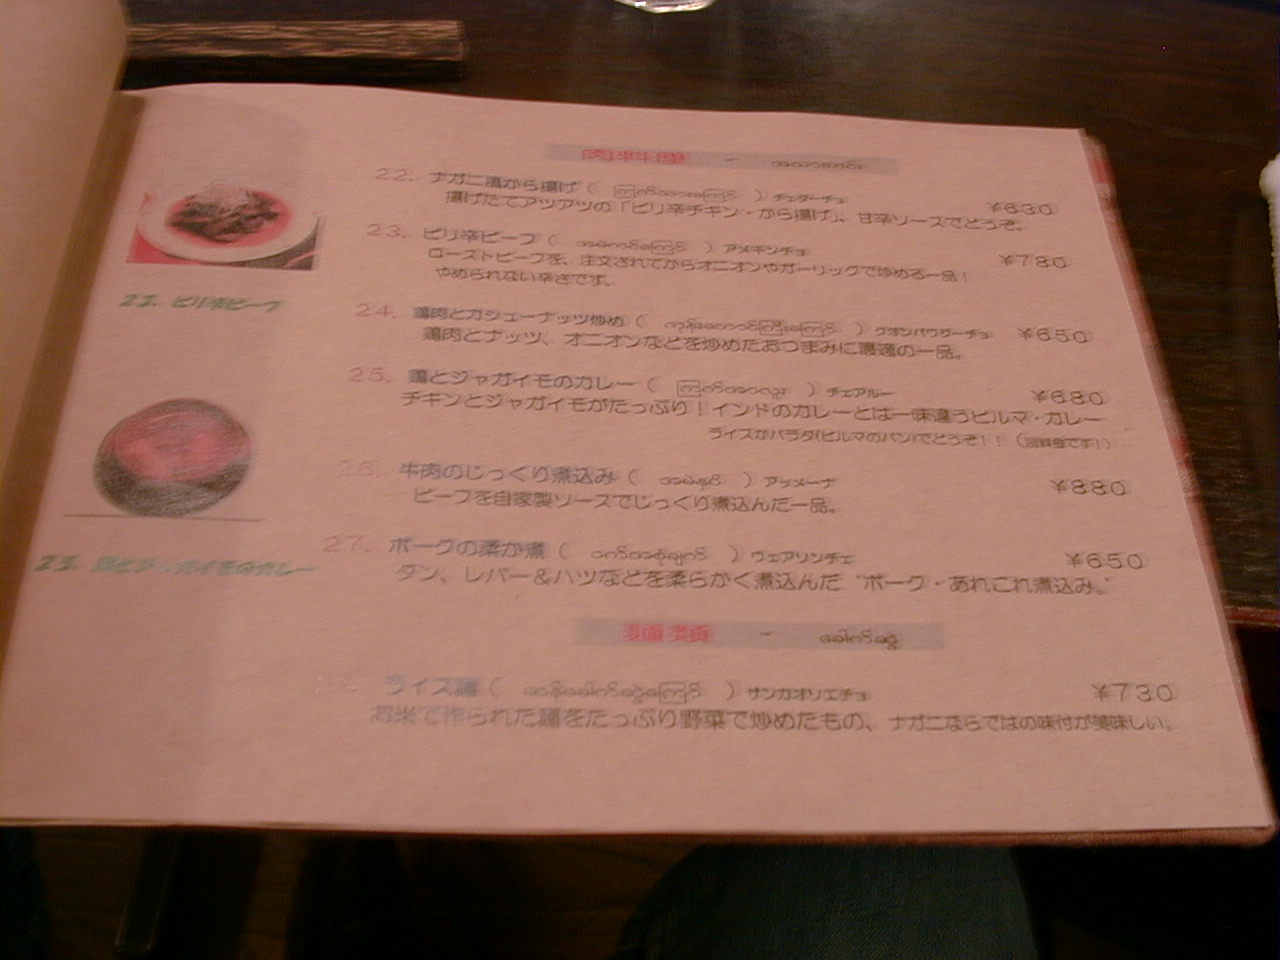 肉料理 -
22. ナガニ風から揚げ ( ) チェダーチョ ¥630
揚げたてアツアツの「ピリ辛チキン・から揚げ」、甘辛ソースでどうぞ。
23. ピリ辛ビーフ ( ) アメキンチョ ¥780
ローストビーフを、注文されてからオニオンやガーリックで炒める一品!
やめられない辛さです。
23. ピリ辛ビーフ
24. 鶏肉とカシューナッツ炒め ( ) クオンパウクーチョ ¥650
鶏肉とナッツ、オニオンなどを炒めたおつまみに最適の一品。
25. 鶏とジャガイモのカレー ( ) チェアルー ¥680
チキンとジャガイモがたっぷり!インドのカレーとは一味違うビルマ・カレー
ライスかパラタ(ビルマのパン)でどうぞ!! (別料金です!)
26. 牛肉のじっくり煮込み ( ) アッメーナ ¥880
ビーフを自家製ソースでじっくり煮込んだ一品。
27. ポークの柔か煮 ( ) ヴェアリンチェ ¥650
タン、レバー&ハツなどを柔らかく煮込んだ“ポーク・あれこれ煮込み。”
25. 鶏とジャガイモのカレー
麺類 -
ライス麺 ( ) サンカオリエチョ ¥730
お米で作られた麺をたっぷり野菜で炒めたもの、ナガニならではの味付が美味しい。